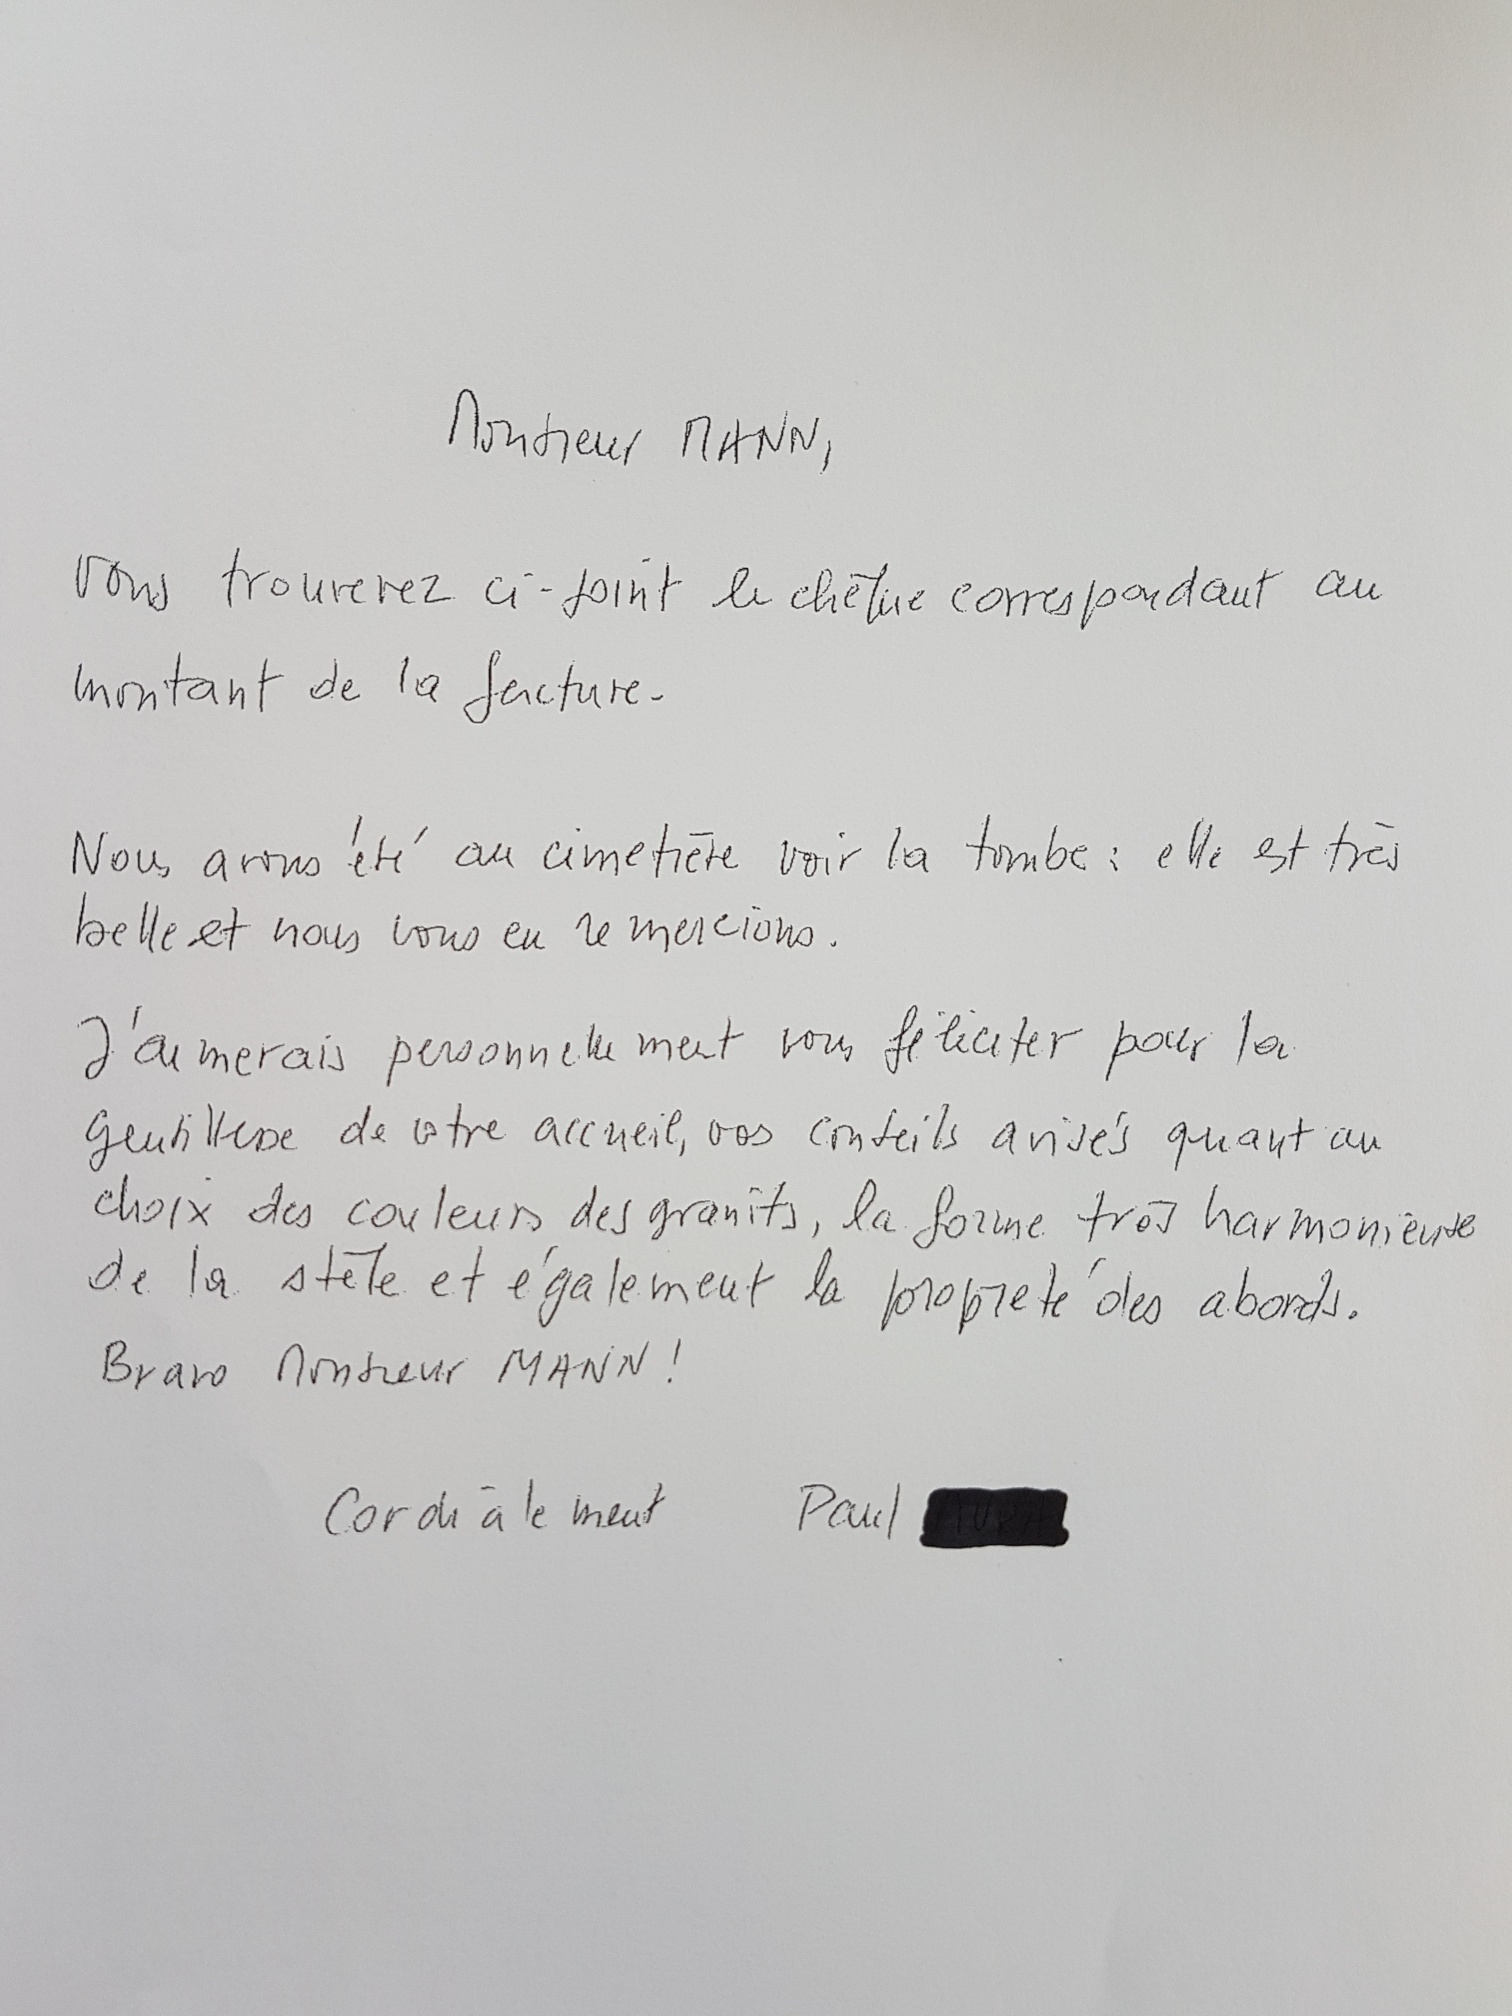 Monsieur MANN,
Vous trouverez ci-joint le chèque correspondant au
montant de la facture.
Nous avons été au cimetière voir la tombe : elle est très
belle et nous vous en remercions.
J'aimerais personnellement vous féliciter pour la
gentillesse de votre accueil, vos conseils avisés quant au
choix des couleurs des granits, la forme très harmonieuse
de la stèle et également la propreté des abords.
Bravo Monsieur MANN !
Cordialement Paul